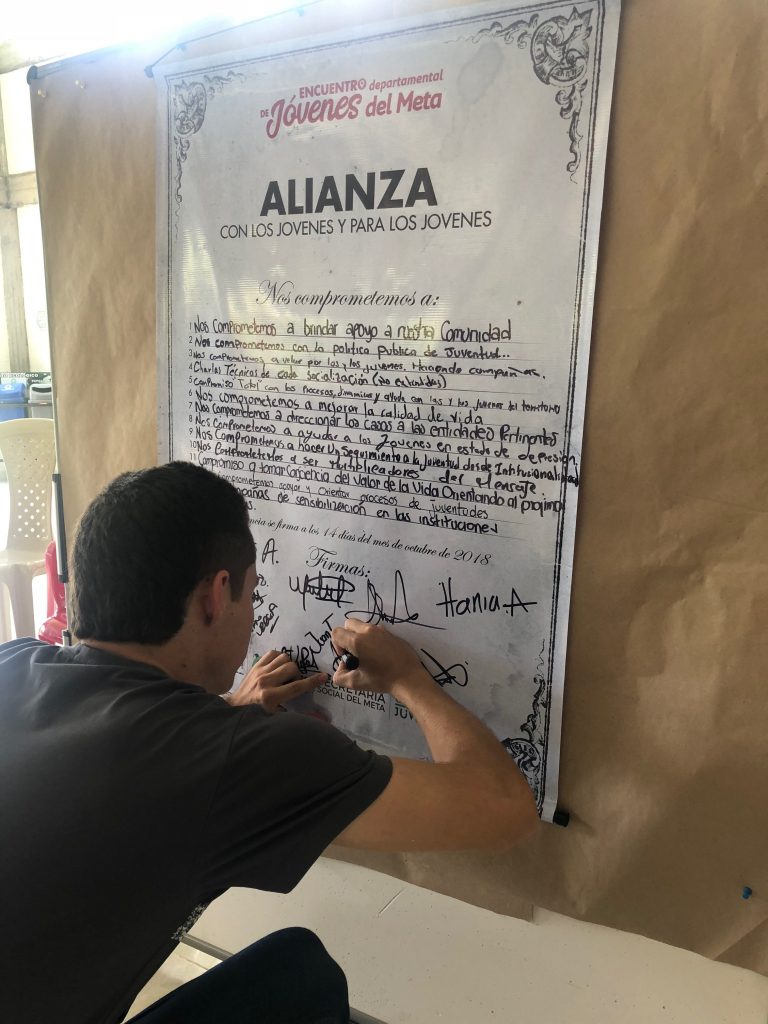 ENCUENTRO departamental
DE Jóvenes del Meta
ALIANZA
CON LOS JOVENES Y PARA LOS JOVENES
Nos comprometemos a:
1 Nos Comprometemos a brindar apoyo a nuestra Comunidad
2 Nos comprometemos con la politica publica de Juventud...
3 Nos comprometemos a velar por los y las Juvenes. Haciendo campañas.
4 Charlas Técnicas de cada socialización (No excluidos)
5 Compromiso Total con los Procesos, dinamicas y ayuda con las y los Juvenes del territorio
6 Nos comprometemos a mejorar la calidad de vida
7 Nos Comprometemos a direccionar los casos a las entidades Pertinentes
8 Nos Comprometemos a ayudar a los Jovenes en estado de depresion
9 Nos Comprometemos a hacer Un Seguimiento a la Juventud desde Intitucionalidad
10 Nos Comprometemos a ser multiplicadores del mensaje
11 Compromiso a tomar Conciencia del Valor de la Vida Orientando al projimo
comprometemos apoyar y Orientar procesos de juventudes
pañas de sensibilización en las instituciones
s.
ncia se firma a los 14 días del mes de octubre de 2018
Firmas:
A.
Hania.A
SECRETARIA
SOCIAL DEL META
JUV